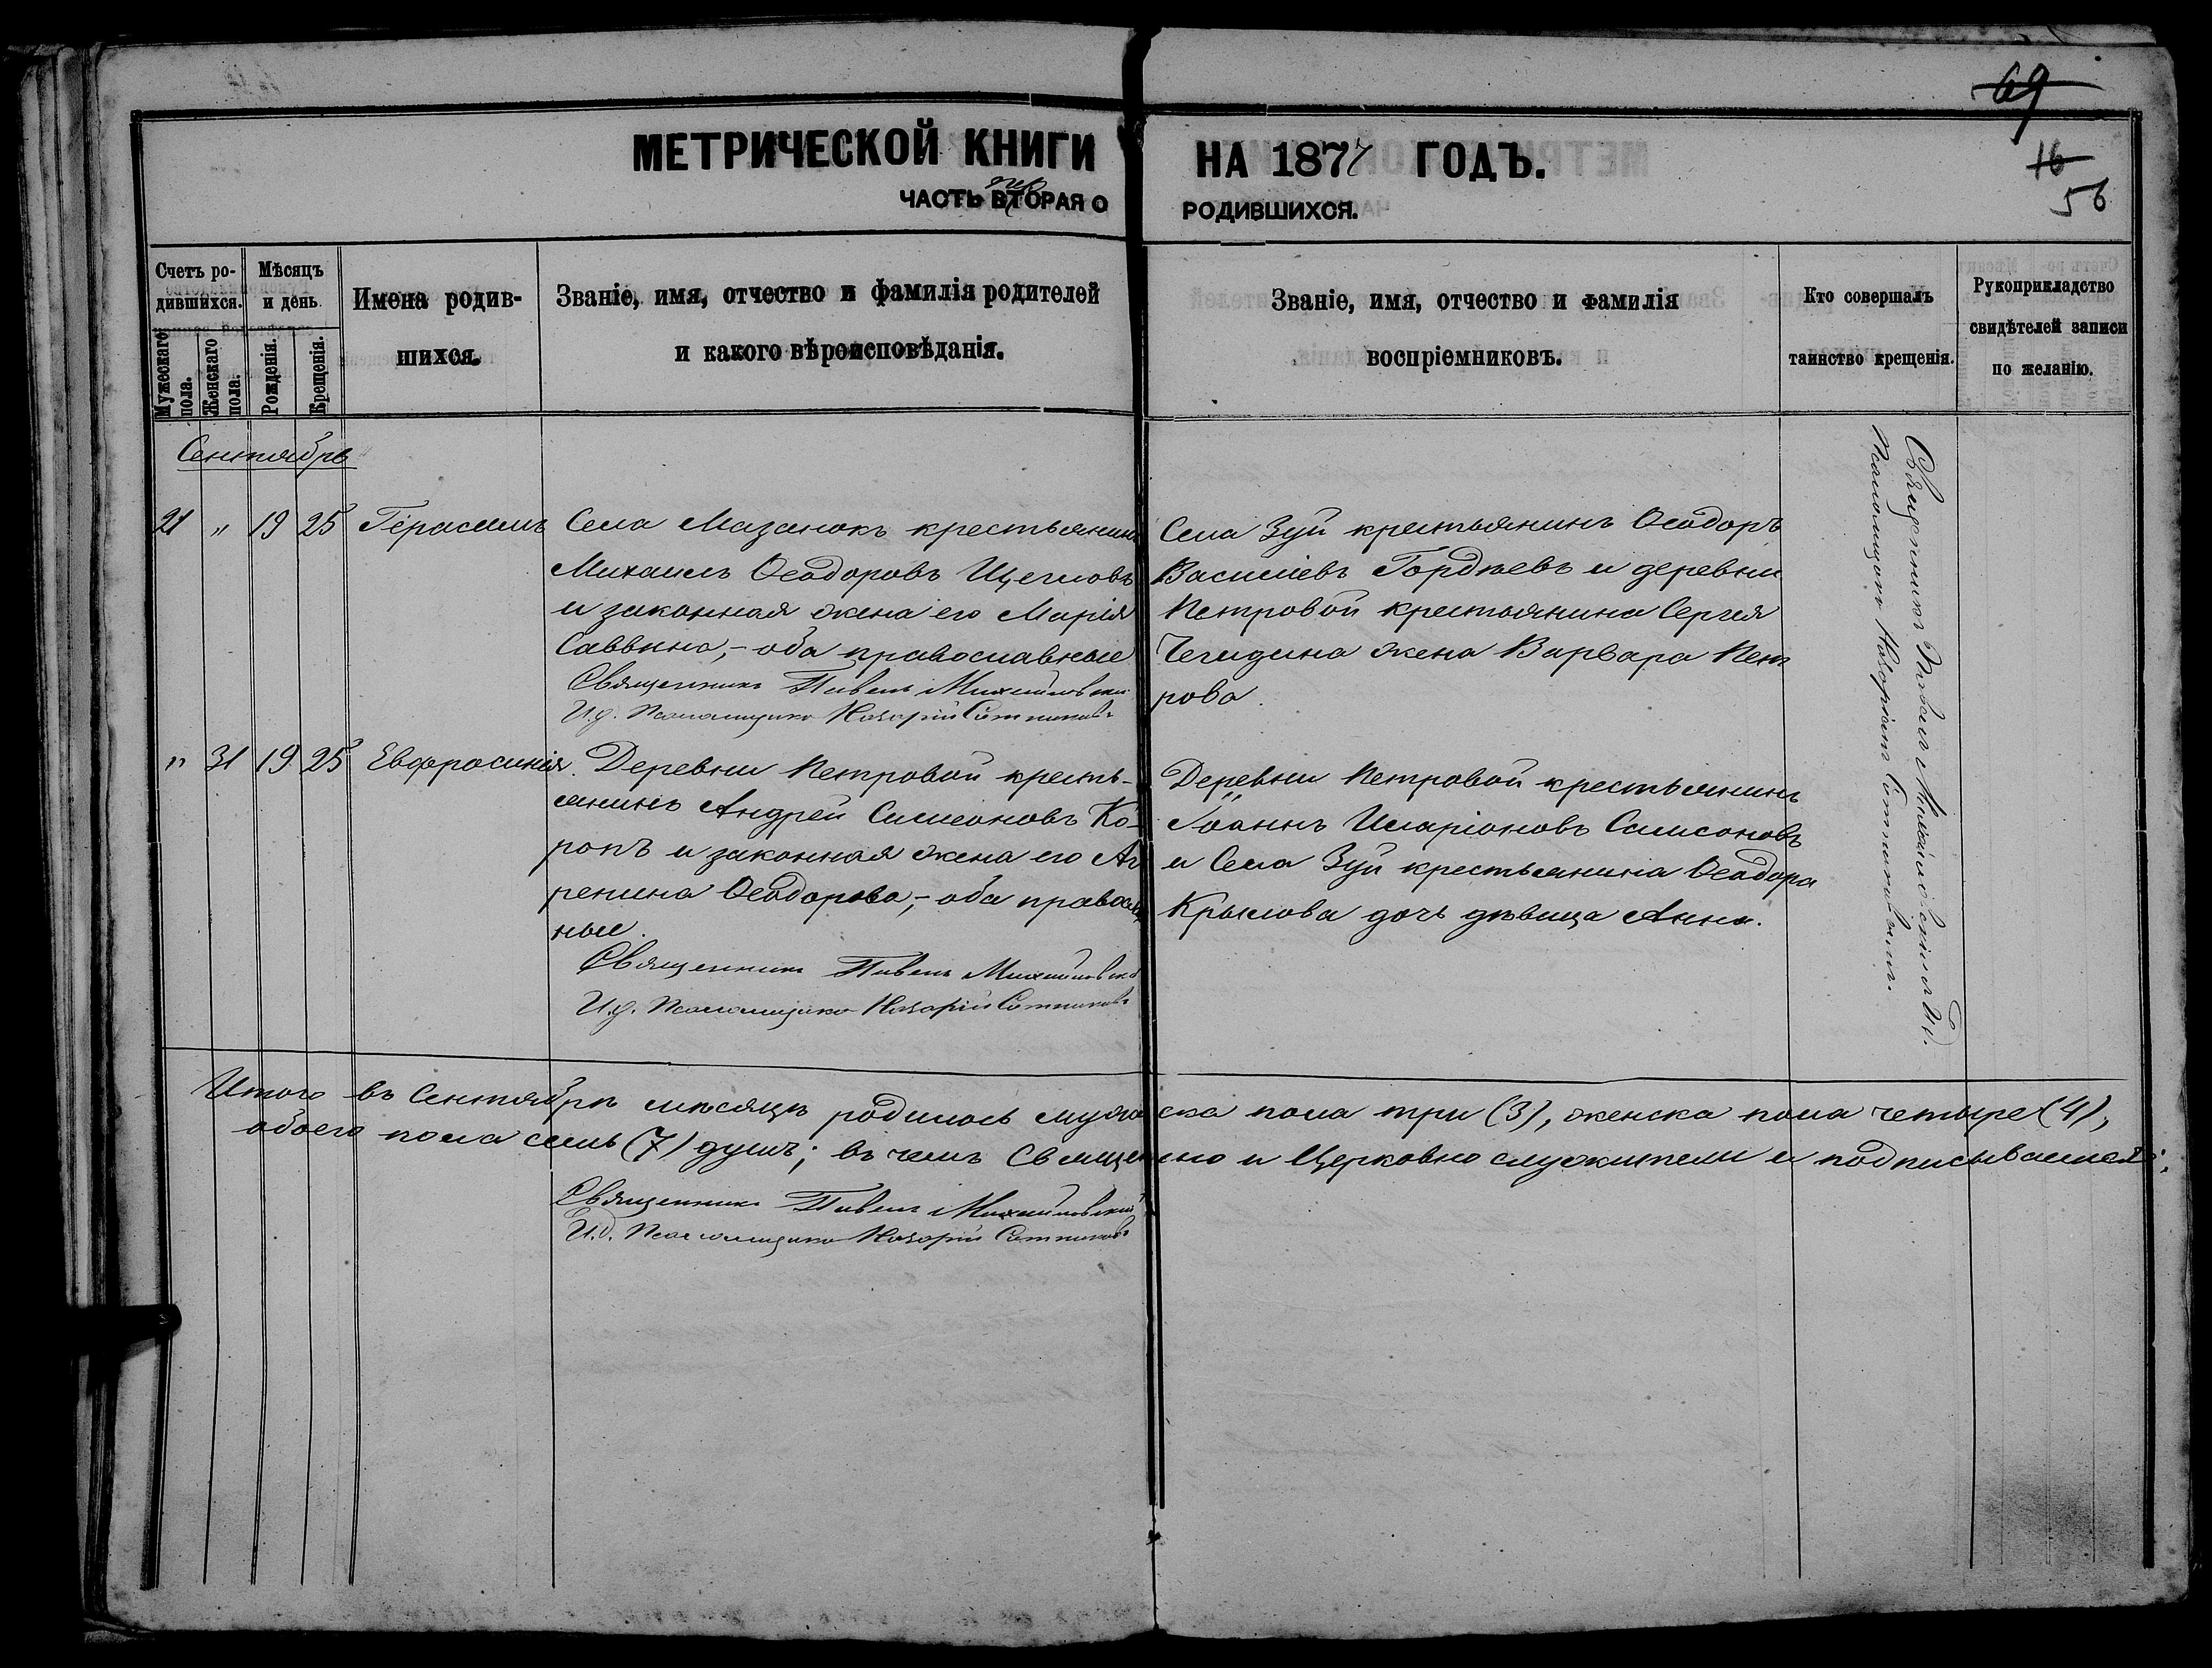 69
МЕТРИЧЕСКОЙ КНИГИ НА 1877 ГОДЪ.
16
56
ЧАСТЬ ВТОРАЯ О РОДИВШИХСЯ.
пер
Счетъ ро-
дившихся.
Мужескаго пола.
Женскаго пола.
Мѣсяцъ
и день.
Рожденія.
Крещенія.
Имена родив-
шихся.
Званіе, имя, отчество и фамилія родителей
и какого вѣроисповѣданія.
Званіе, имя, отчество и фамилія
воспріемниковъ.
Кто совершалъ
таинство крещенія.
Рукоприкладство
свидѣтелей записи
по желанію.
Сентябрь
21 " 19 25 Герасимъ
Села Мазанокъ крестьянинъ
Михаилъ Ѳеодоровъ Щегловъ
и законная жена его Марія
Саввина,- оба православные
Священникъ Павелъ Михайловскій
И.д. Псаломщика Назарій Сотниковъ
Села Зуи крестьянинъ Ѳеодоръ
Василіевъ Гордѣевъ и деревни
Петровой крестьянина Сергія
Чегидина жена Варвара Пет
рова.
" 31 19 25 Евфросинія.
Деревни Петровой кресть-
янинъ Андрей Симеоновъ Ко-
ропъ и законная жена его Аг
репина Ѳеодорова,- оба правосла
ные.
Священникъ Павелъ Михайловскій
И.д. Псаломщика Назарій Сотниковъ
Деревни Петровой крестьянинъ
Іоаннъ Иларіоновъ Самсоновъ
и Села Зуи крестьянина Ѳеодора
Крылова дочь дѣвица Анна.
Священникъ Павелъ Михайловскій съ И.д.
Псаломщикомъ Назаріемъ Сотниковымъ.
Итого въ Сентябрѣ мѣсяцѣ родилось мужеска пола три (3), женска пола четыре (4),
обоего пола семь (7) душъ; въ чемъ Священно и Церковно служители и подписываемся:
Священникъ Павелъ Михайловскій
И.д. Псаломщика Назарій Сотниковъ